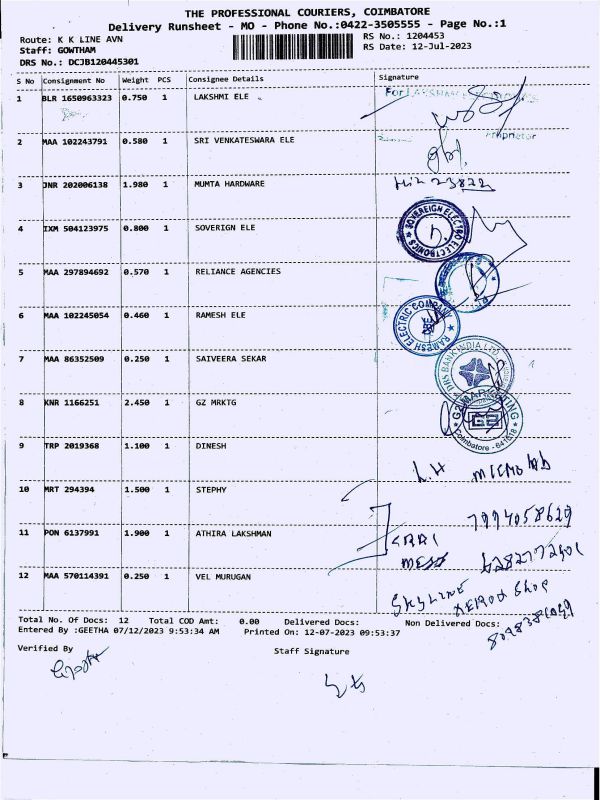 THE PROFESSIONAL COURIERS, COIMBATORE
Delivery Runsheet - MO - Phone No.:0422-3505555 - Page No.:1
Route: K K LINE AVN
RS No.: 1204453
Staff: GOWTHAM
RS Date: 12-Jul-2023
DRS No.: DCJB120445301
S No Consignment No Weight PCS Consignee Details Signature
1 BLR 1650963323 0.750 1 LAKSHMI ELE
For
Proprietor
2 MAA 102243791 0.580 1 SRI VENKATESWARA ELE
3 JNR 202006138 1.980 1 MUMTA HARDWARE
4 IXM 504123975 0.800 1 SOVERIGN ELE
SOVEREIGN ELECTRO ELECTRONICS
5 MAA 297894692 0.570 1 RELIANCE AGENCIES
6 MAA 102245054 0.460 1 RAMESH ELE
RAMESH ELECTRIC COMPANY
7 MAA 86352509 0.250 1 SAIVEERA SEKAR
BANK INDIA LTD
8 KNR 1166251 2.450 1 GZ MRKTG
G2 MARKETING
G2
Coimbatore - 641018
9 TRP 2019368 1.100 1 DINESH
L.H micro lab
10 MRT 294394 1.500 1 STEPHY
7994058629
11 PON 6137991 1.900 1 ATHIRA LAKSHMAN
12 MAA 570114391 0.250 1 VEL MURUGAN
SKYLINE XEROX SHOP
Total No. Of Docs: 12 Total COD Amt: 0.00 Delivered Docs: Non Delivered Docs:
Entered By :GEETHA 07/12/2023 9:53:34 AM Printed On: 12-07-2023 09:53:37
Verified By Staff Signature